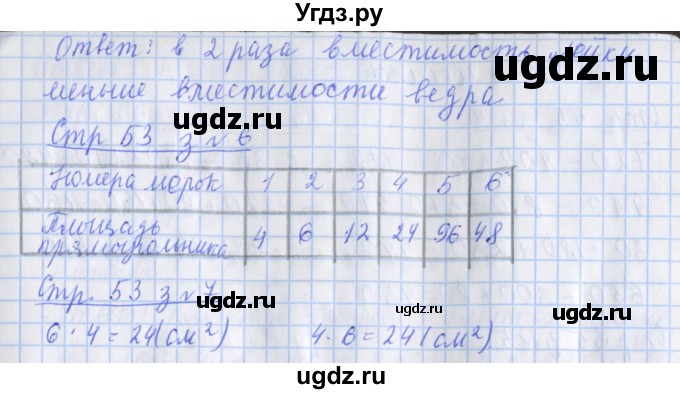 Угдз.ру
Ответ: в 2 раза вместимость лейки
меньше вместимости ведра
ugdz.ru
ugdz.ru
Стр 53 з № 6
Номера морок 1 2 3 4 5 6
ugdz.ru
ugdz.ru
Площадь прямоугольника 4 6 12 24 96 48
Стр. 53 з № 7
ugdz.ru
6 · 4 = 24 (см²) 4 · 6 = 24 (см²)
ugdz.ru
ugdz.ru